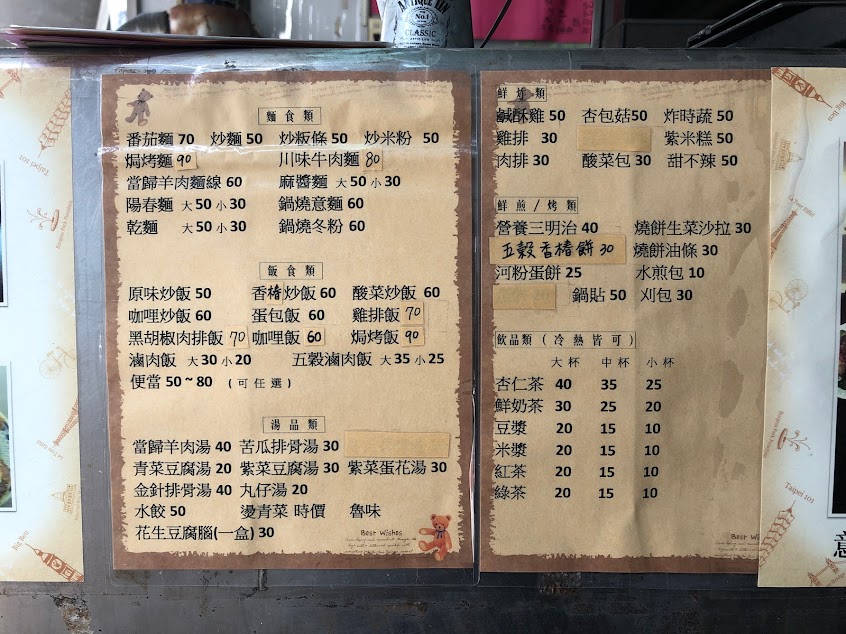 ANTIQUE TIN
No.1
CLASSIC
麵食類
番茄麵 70 炒麵 50 炒粄條 50 炒米粉 50
焗烤麵 90 川味牛肉麵 80
當歸羊肉麵線 60 麻醬麵 大 50 小 30
陽春麵 大 50 小 30 鍋燒意麵 60
乾麵 大 50 小 30 鍋燒冬粉 60
飯食類
原味炒飯 50 香椿炒飯 60 酸菜炒飯 60
咖哩炒飯 60 蛋包飯 60 雞排飯 70
黑胡椒肉排飯 70 咖哩飯 60 焗烤飯 90
滷肉飯 大 30 小 20 五穀滷肉飯 大 35 小 25
便當 50 ~ 80 (可任選)
湯品類
當歸羊肉湯 40 苦瓜排骨湯 30
青菜豆腐湯 20 紫菜豆腐湯 30 紫菜蛋花湯 30
金針排骨湯 40 丸仔湯 20
水餃 50 燙青菜 時價 魯味
花生豆腐腦(一盒) 30
Best Wishes
鮮炸類
鹹酥雞 50 杏包菇50 炸時蔬 50
雞排 30 紫米糕 50
肉排 30 酸菜包 30 甜不辣 50
鮮煎/烤類
營養三明治 40 燒餅生菜沙拉 30
五穀香椿餅 30 燒餅油條 30
河粉蛋餅 25 水煎包 10
鍋貼 50 刈包 30
飲品類(冷熱皆可)
大杯 中杯 小杯
杏仁茶 40 35 25
鮮奶茶 30 25 20
豆漿 20 15 10
米漿 20 15 10
紅茶 20 15 10
綠茶 20 15 10
Best Wi
Taipei 101
Big Ben